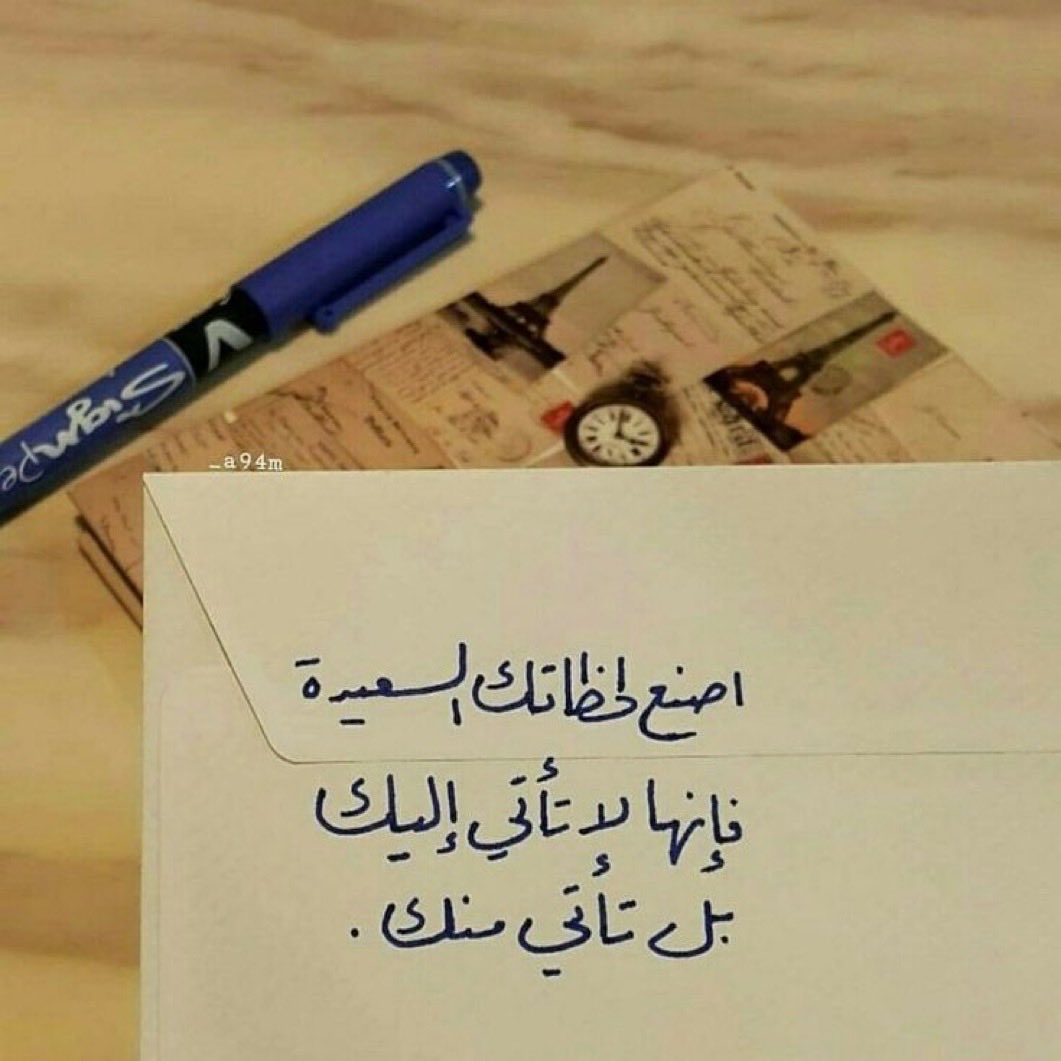 V
Signpe
_a94m
اصنع لحظاتك السعيدة
فإنها لا تأتي إليك
بل تأتي منك .